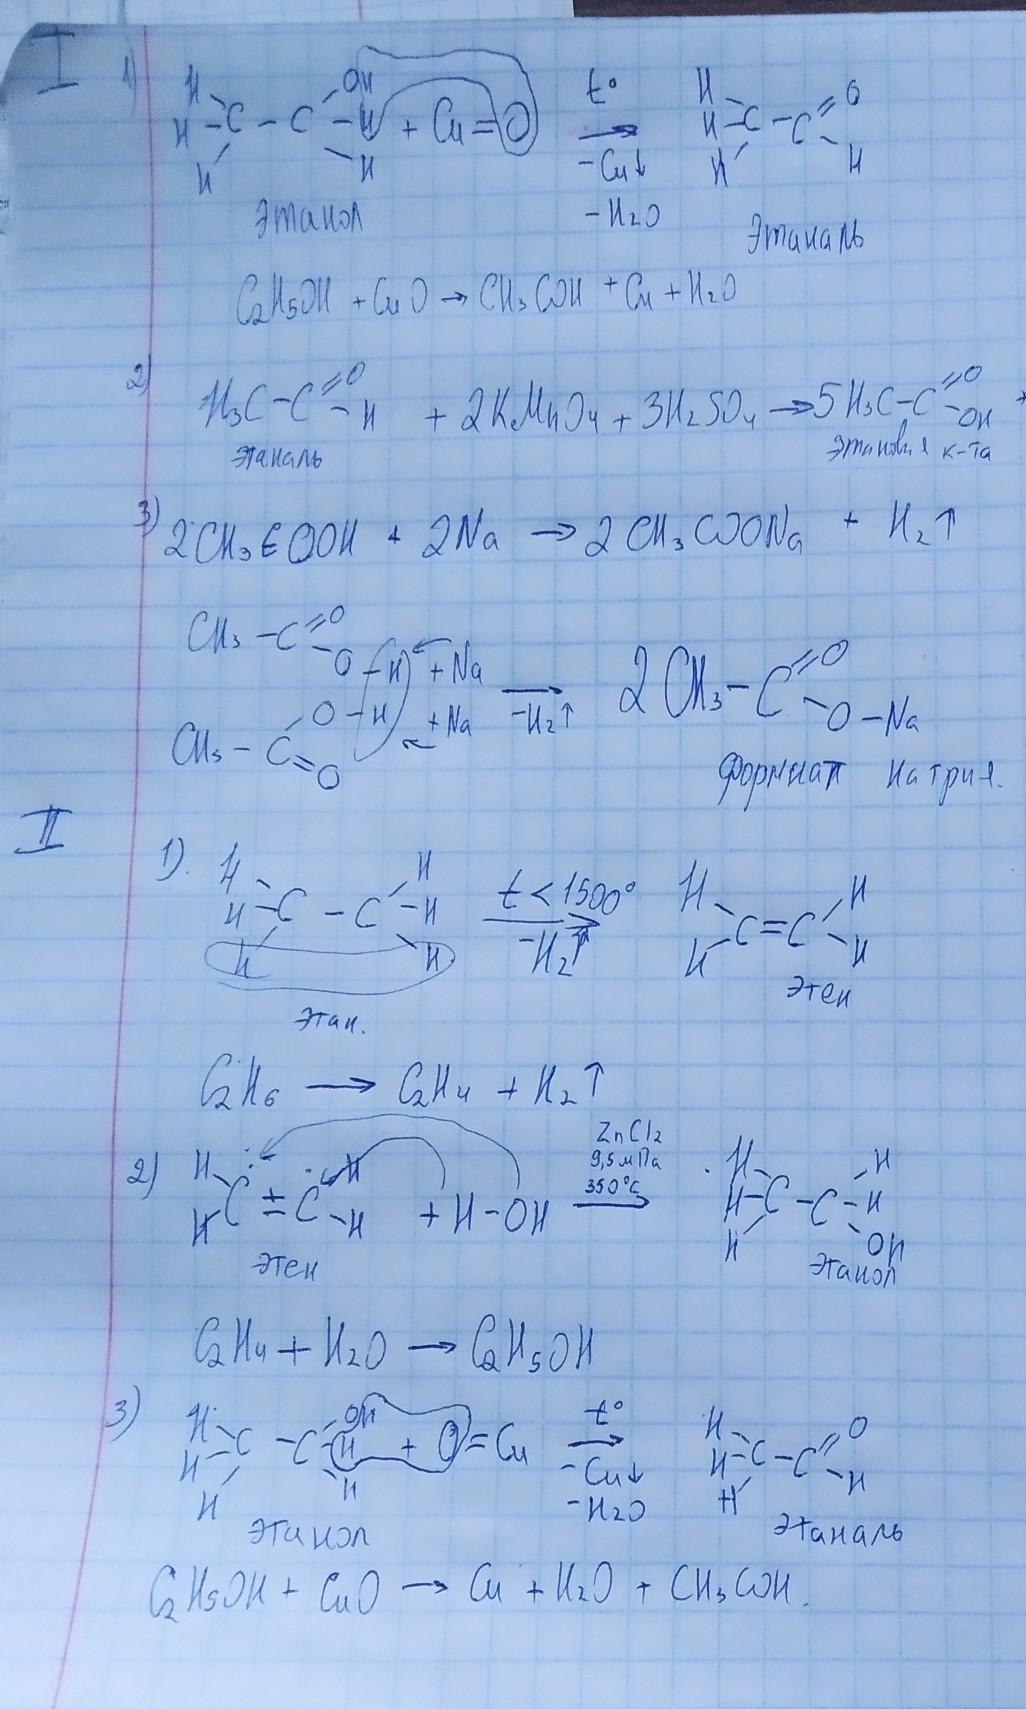 I
1)
H H H C - C OH H H + Cu = O t° → -Cu↓ -H2O H H H C - C O H
Этанол Этаналь
C2H5OH + CuO → CH3COH + Cu + H2O
2) H3C - C =O - H + 2KMnO4 + 3H2SO4 → 5H3C - C =O - OH +
этаналь этановая к-та
3) 2CH3COOH + 2Na → 2CH3COONa + H2↑
CH3 - C =O O - H + Na
CH3 - C O - H =O + Na → -H2↑ 2CH3 - C =O O - Na
формиат натрия.
II
1). H H H C - C H H H t < 1500° → -H2↑ H H C = C H H
этан. этен
C2H6 → C2H4 + H2↑
2) H H C = C H H + H - OH ZnCl2 9,5 мПа 350°C → H H H C - C H H OH
этен этанол
C2H4 + H2O → C2H5OH
3) H H H C - C OH H H + O = Cu t° → -Cu↓ -H2O H H H C - C =O H
этанол этаналь
C2H5OH + CuO → Cu + H2O + CH3COH.